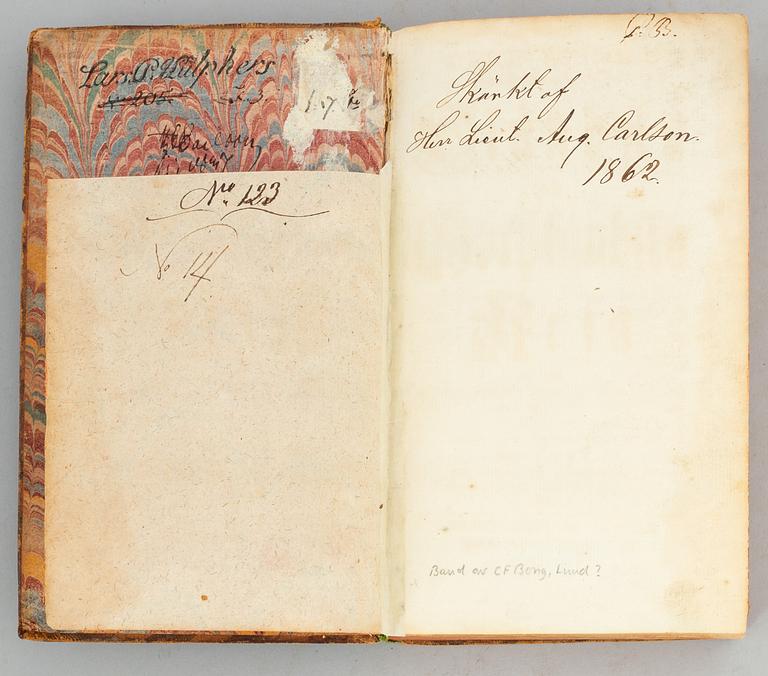 Lars P. Wülphers
N:o 205.
No 123
No 14
P. B.
Skänkt af
Herr Lieut. Aug. Carlson.
1862.
Band av CF Bong, Lund?